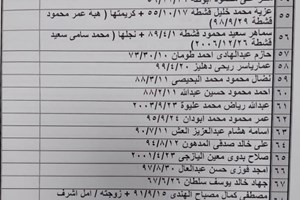 عزيه محمد خليل قشطة ٥٥/١٠/١٧ + كريمتها ( هبه عمر محمود
قشطة ٩٨/٩/٢٩)
سماهر سعيد محمود قشطة ٨٩/٤/١ + نجلها ( محمد سامي سعيد
قشطة ٢٠٠٦/١٢/٢٦)
٥٧ حازم عبدالهادي احمد طومان ٧٣/٣/١٠
٥٨ عمار ياسر ريحي دهليز ٩٩/٤/٢٠
٥٩ نضال محمود محمد البحيصي ٨٨/٣/١١
٦٠ احمد محمود حسين عبدالله ٨٨/٢
٦١ عبدالله رياض محمد عليوة ٢٠٠٣/٩/٢٣
٦٢ عمر محمود احمد ابودان ٩٢/٥
٦٣ اسامة هشام عبدالعزيز العش ٩٠/٧/١١
٦٤ علي خالد صدقي المدهون ٩٤/٨/١٢
٦٥ صلاح بدوي معين اليازجي ٢٠٠١/٤/٢٣
٦٦ امجد فوزي حسن عبدالعال ٩٧/٨/٣٠
٦٧ جهاد خالد يوسف سلطان ٦٧/٦/٢٦
مصطفى كمال مصباح الهندي ٩١/٩/١٥ + زوجته / امل اشرف